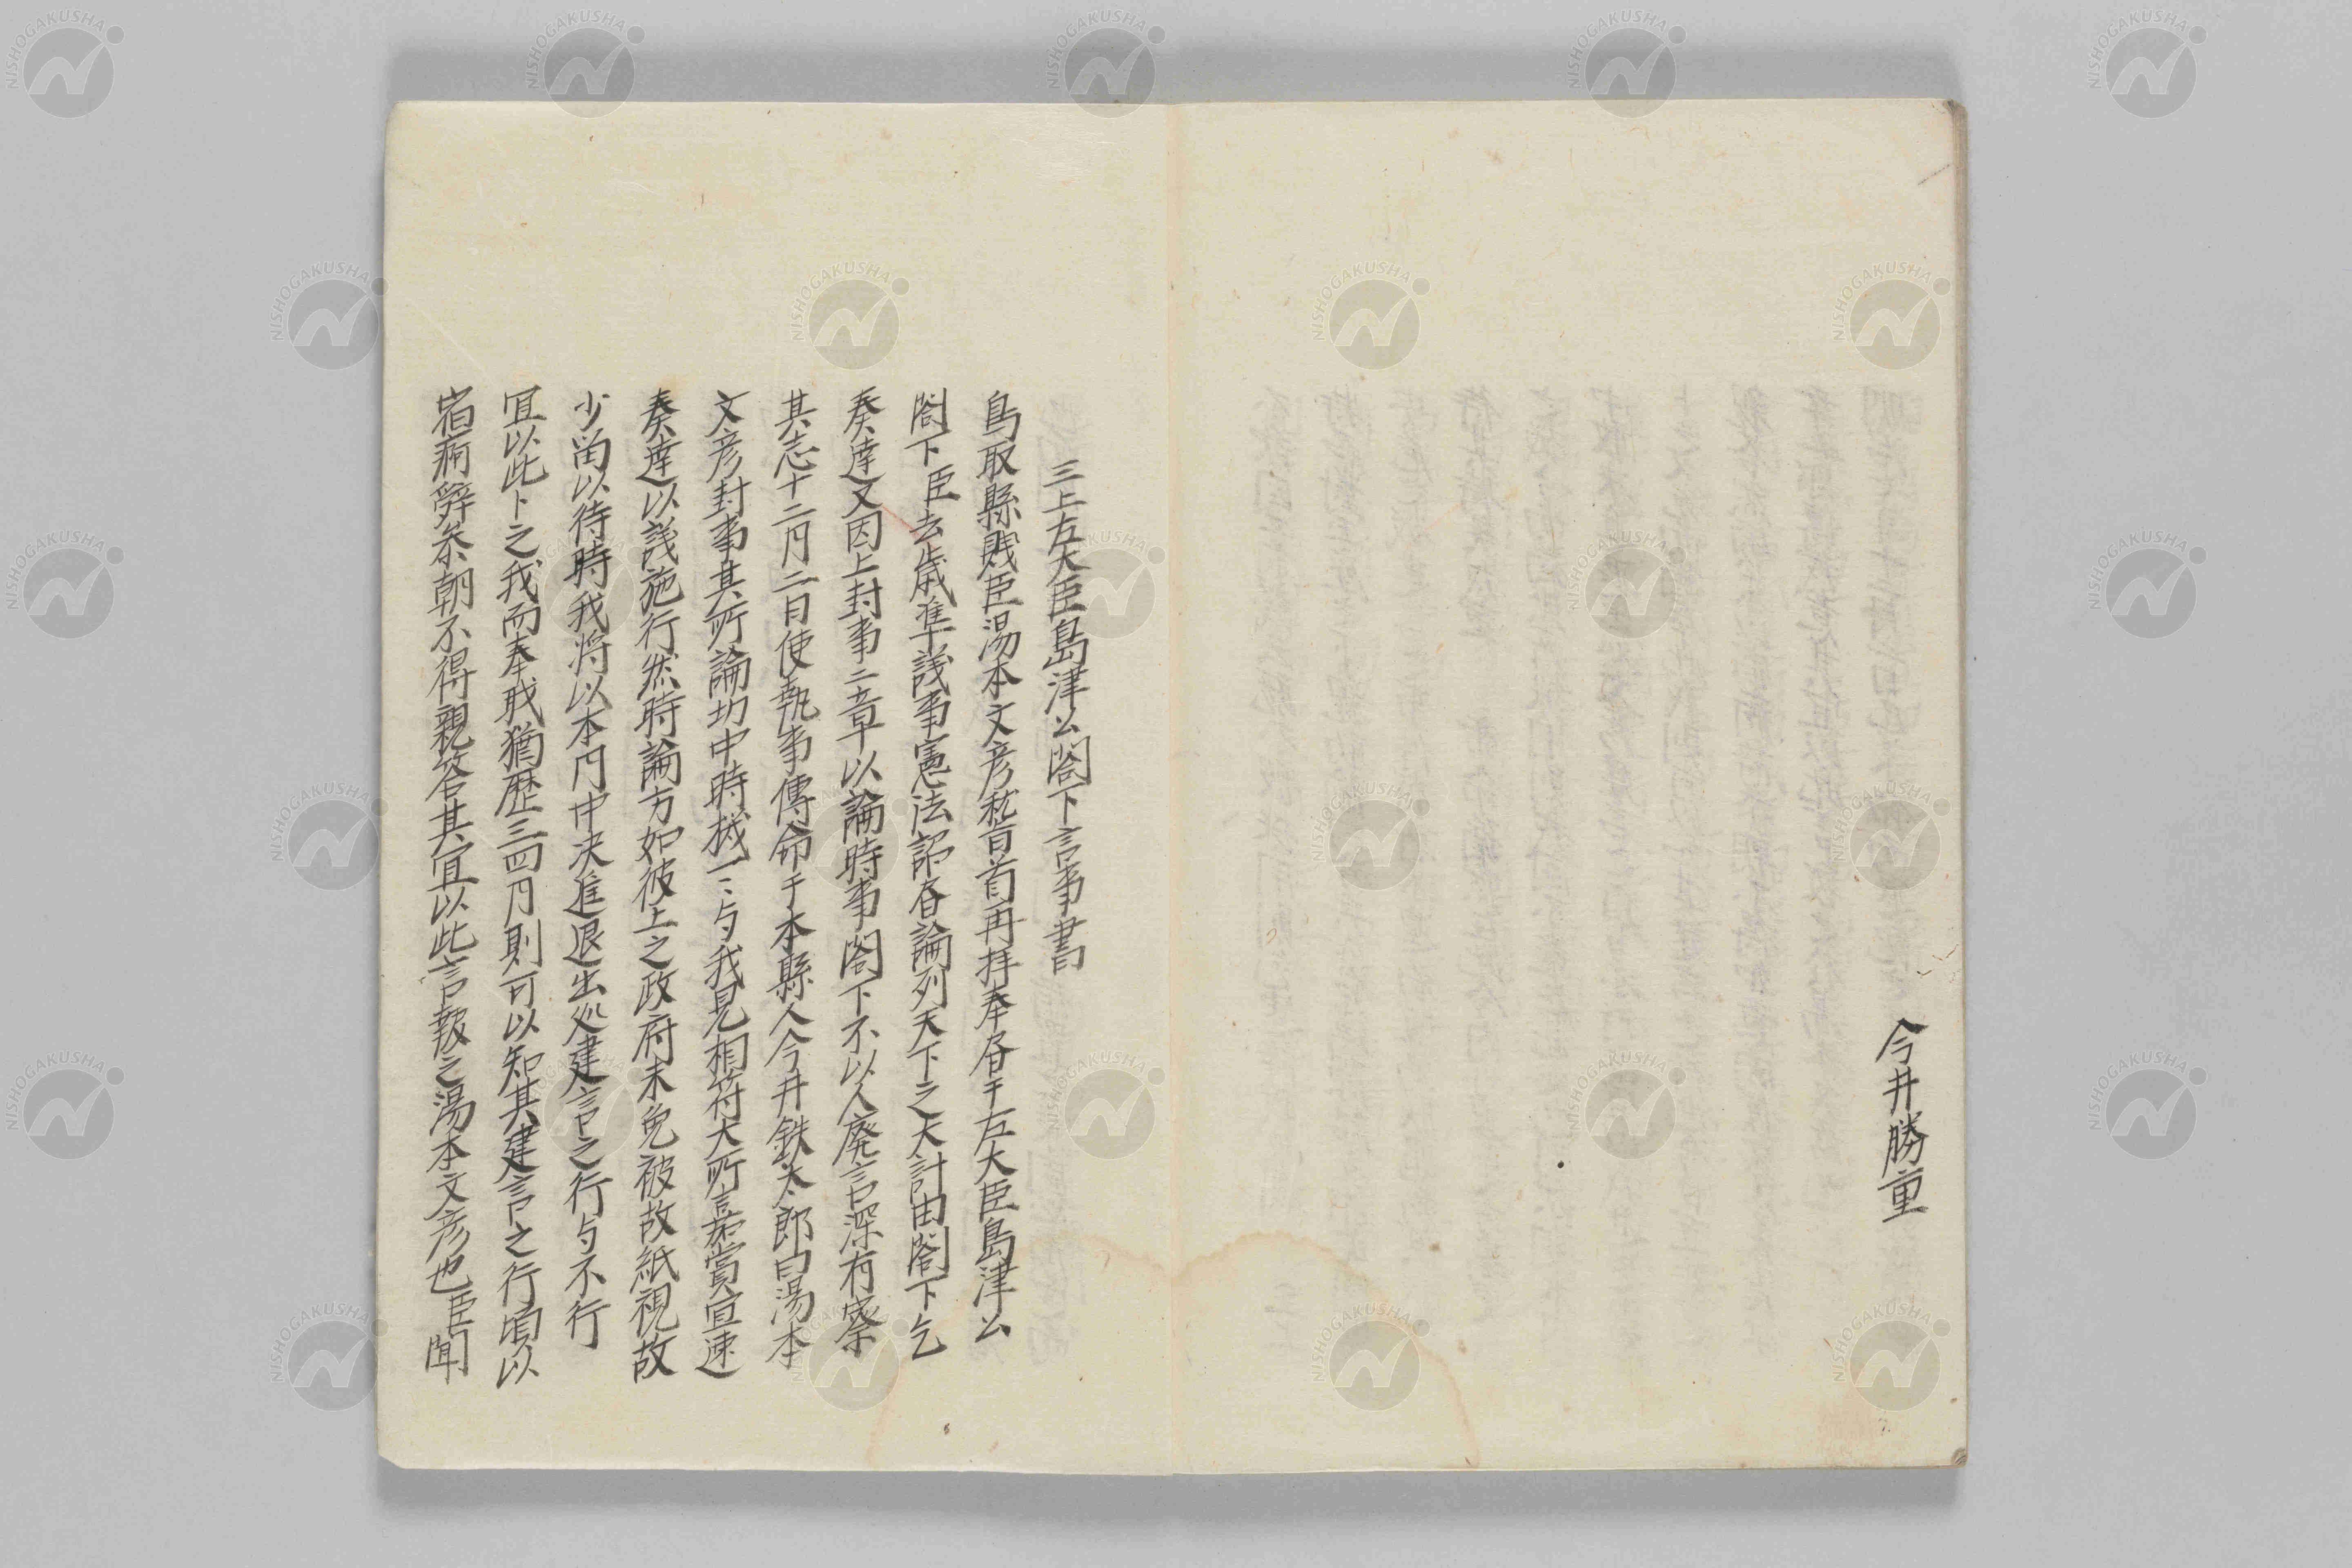 今井勝重
三上左大臣島津公閤下言事書
鳥取縣賤臣湯本文彦嵇首再拝奉屠于左大臣島津公
閤下臣去歳準議事憲法詔春論列天下之大計由閤下乞
奏達又因上封事二章以論時事閤下不以人廃言深有察
其志十二月二日使執事傳命于本縣人今井鉄太郎曰湯本
文彦封事其所論切中時機一々与我見相符大所言嘉賞宜速
奏達以議施行然時論方如彼上之政府未免被故紙視故
少畄以待時我将以本門中决進退出処建言之行与不行
冝以此卜之我而奉職猶歴三四月則可以知其建言之行頃以
宿痾辞参朝不得親答其冝以此言報之湯本文彦也臣聞